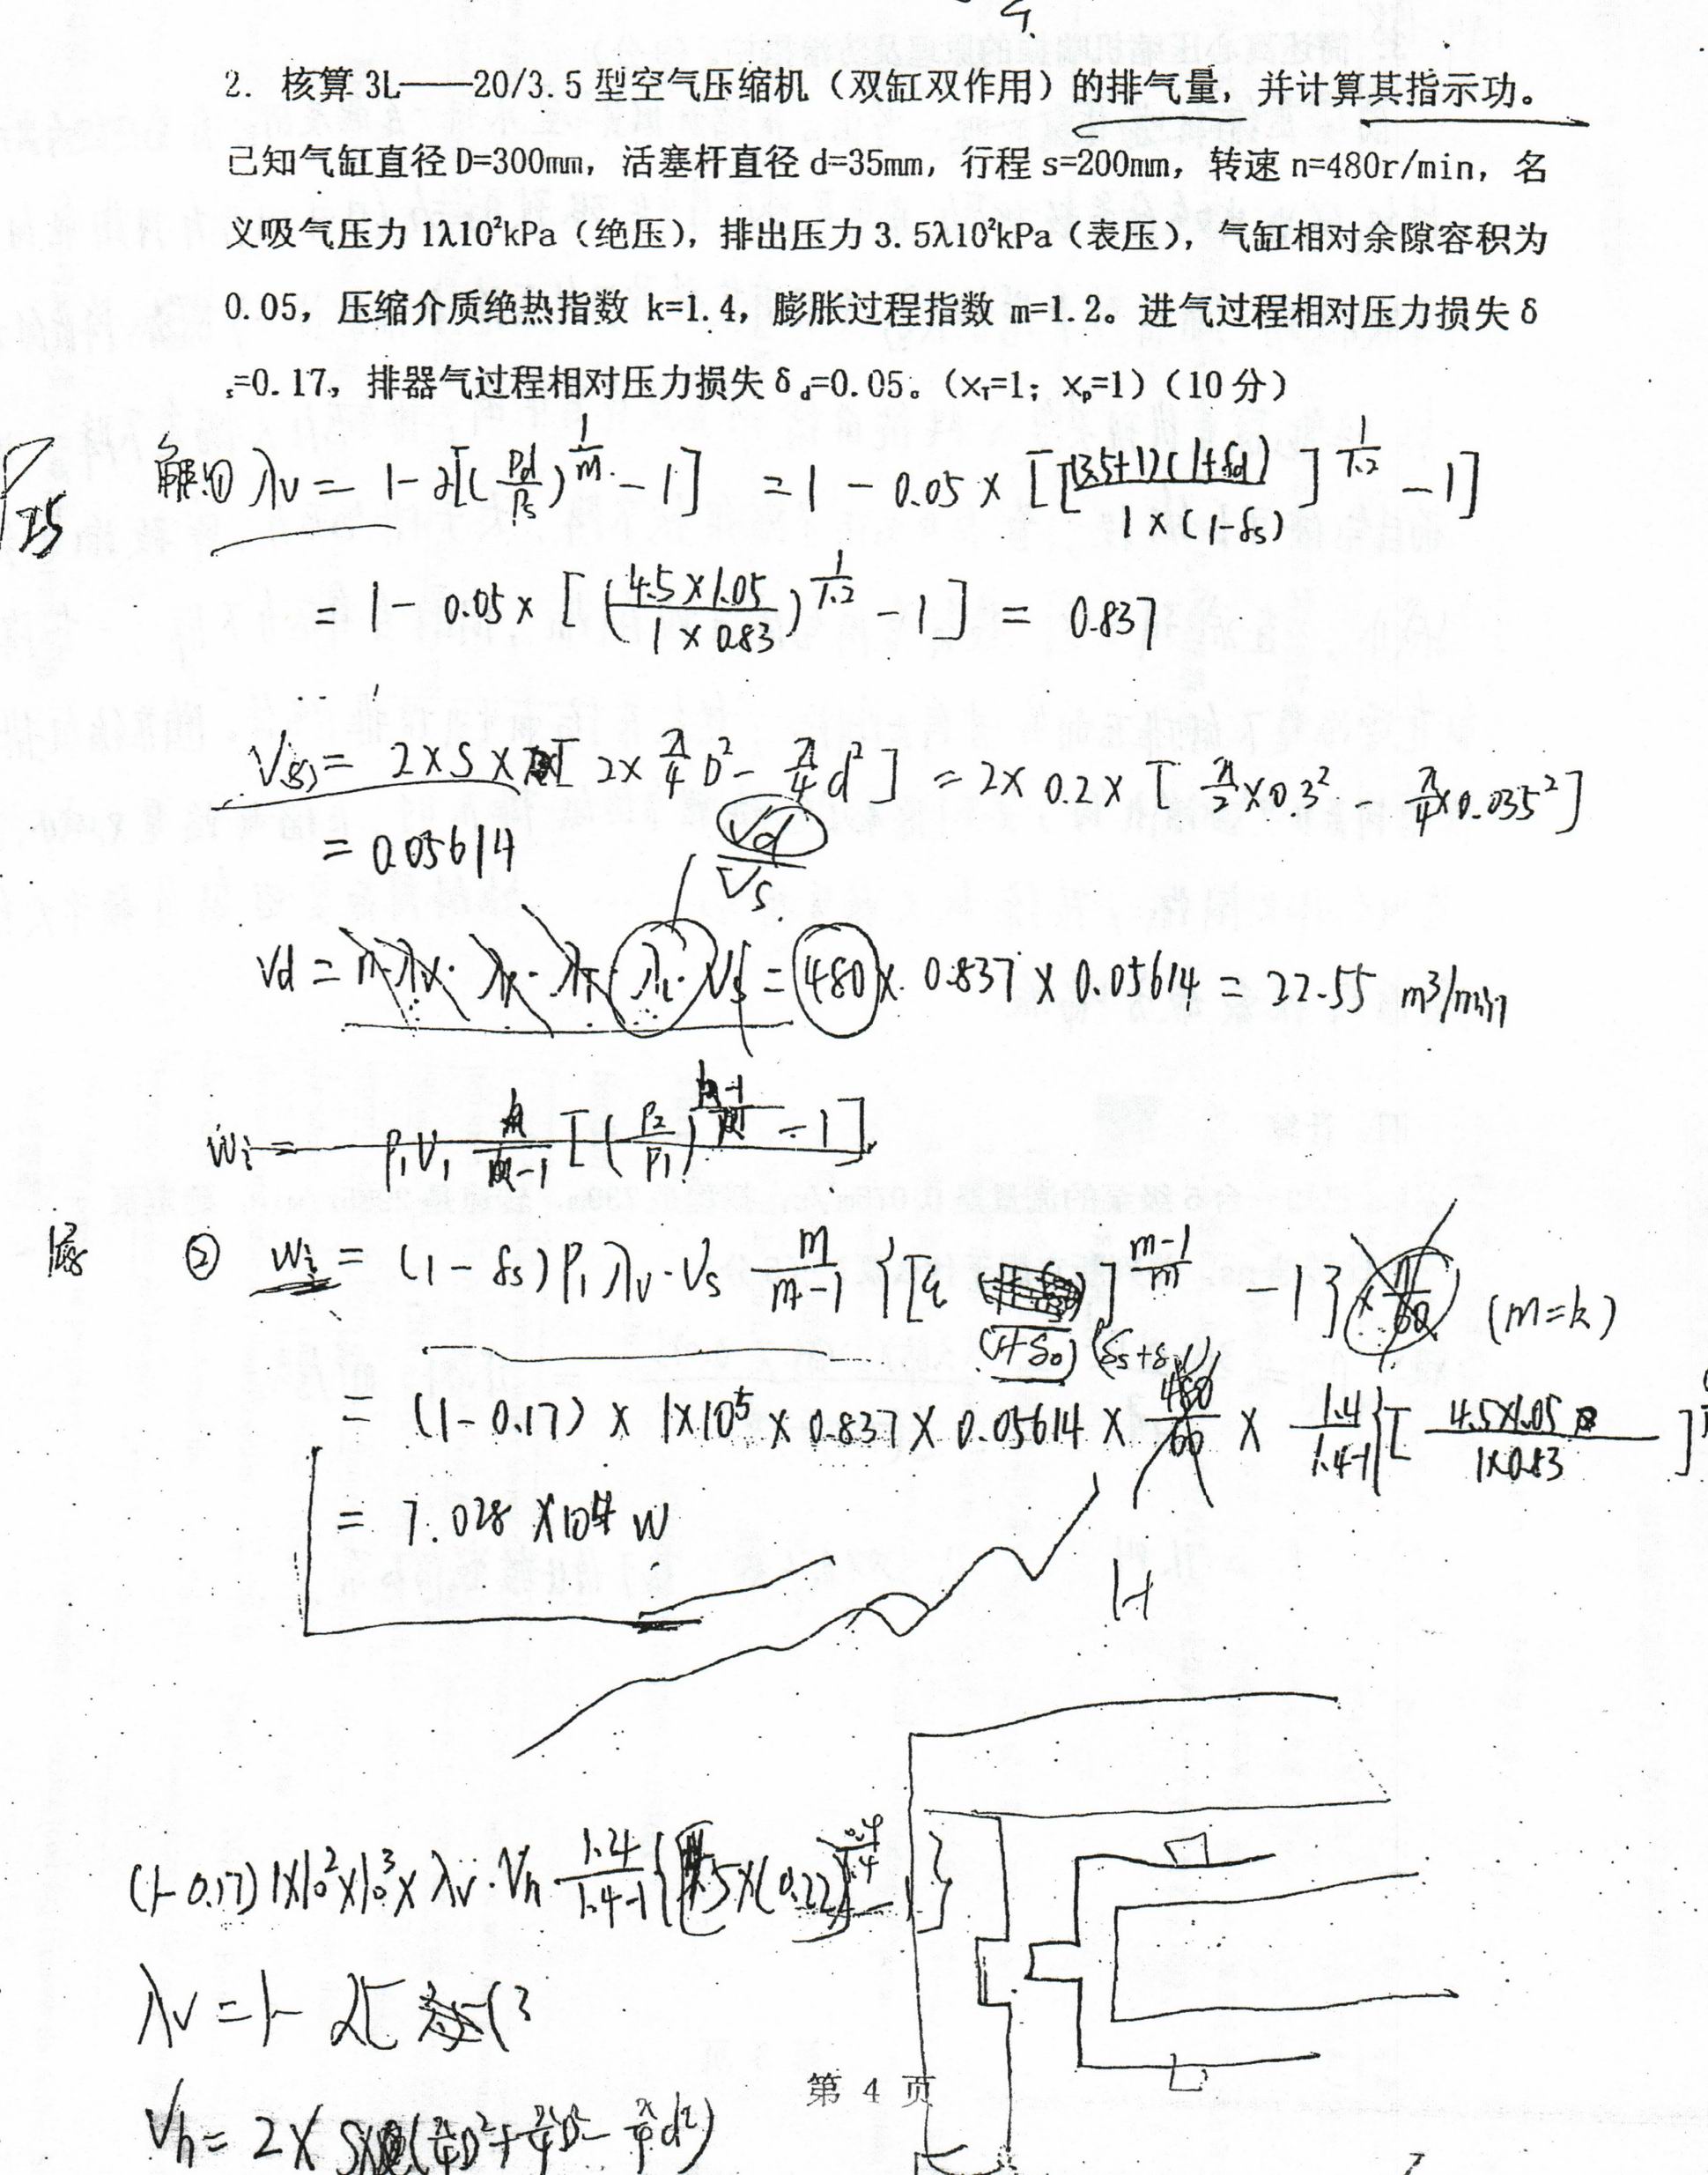 2. 核算 3L——20/3.5 型空气压缩机（双缸双作用）的排气量，并计算其指示功。
已知气缸直径 D=300mm，活塞杆直径 d=35mm，行程 s=200mm，转速 n=480r/min，名
义吸气压力 1λ10²kPa（绝压），排出压力 3.5λ10²kPa（表压），气缸相对余隙容积为
0.05，压缩介质绝热指数 k=1.4，膨胀过程指数 m=1.2。进气过程相对压力损失 δ
ₛ=0.17，排器气过程相对压力损失 δ_d=0.05。（x_T=1；x_p=1）（10 分）
解:① λv = 1-α[(Pd/Ps)^(1/m) -1] = 1 - 0.05 × [[(3.5+1)(1+δd) / 1×(1-δs)]^(1/1.2) -1]
= 1 - 0.05× [(4.5×1.05 / 1×0.83)^(1/1.2) -1] = 0.837
Vs = 2×S×[2×π/4 D² - π/4 d²] = 2× 0.2× [π/2×0.3² - π/4×0.035²]
= 0.05614
Vd/Vs
Vd = n·λv· λp· λT· λl· Vs = 480 × 0.837 × 0.05614 = 22.55 m³/min
Wi = P₁V₁ [(P₂/P₁) -1]
② Wi = (1-δs) P₁ λv·Vs m/m-1 {[ε ]^(m-1/m) -1} × n/60 (m=k)
(1+δ₀) (δs+δd)
= (1-0.17) × 1×10⁵ × 0.837 × 0.05614 × 480/60 × 1.4/1.4-1 {[4.5×1.05 / 1×0.83]
= 7.028 ×10⁴ W
(1-0.17) 1×10²×10³× λv·Vh 1.4/1.4-1 { 5×(0.22) }
λv = 1- α[ (3
Vh = 2× S×(π/4 D²+π/4 D²- π/4 d²)
第 4 页